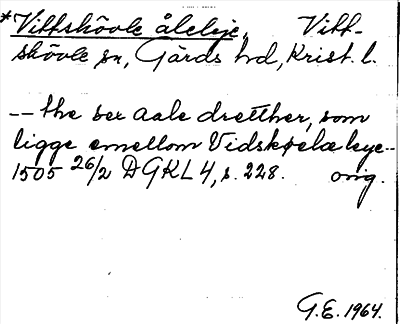 *Vittskövle åleleje, Vitt-
skövle sn, Gärds hd, Krist. l.
-- the sex aale dretther, som
ligge emellom Vidskølæ leye--
1505 26/2 DGKL 4, s. 228. orig.
G.E. 1964.